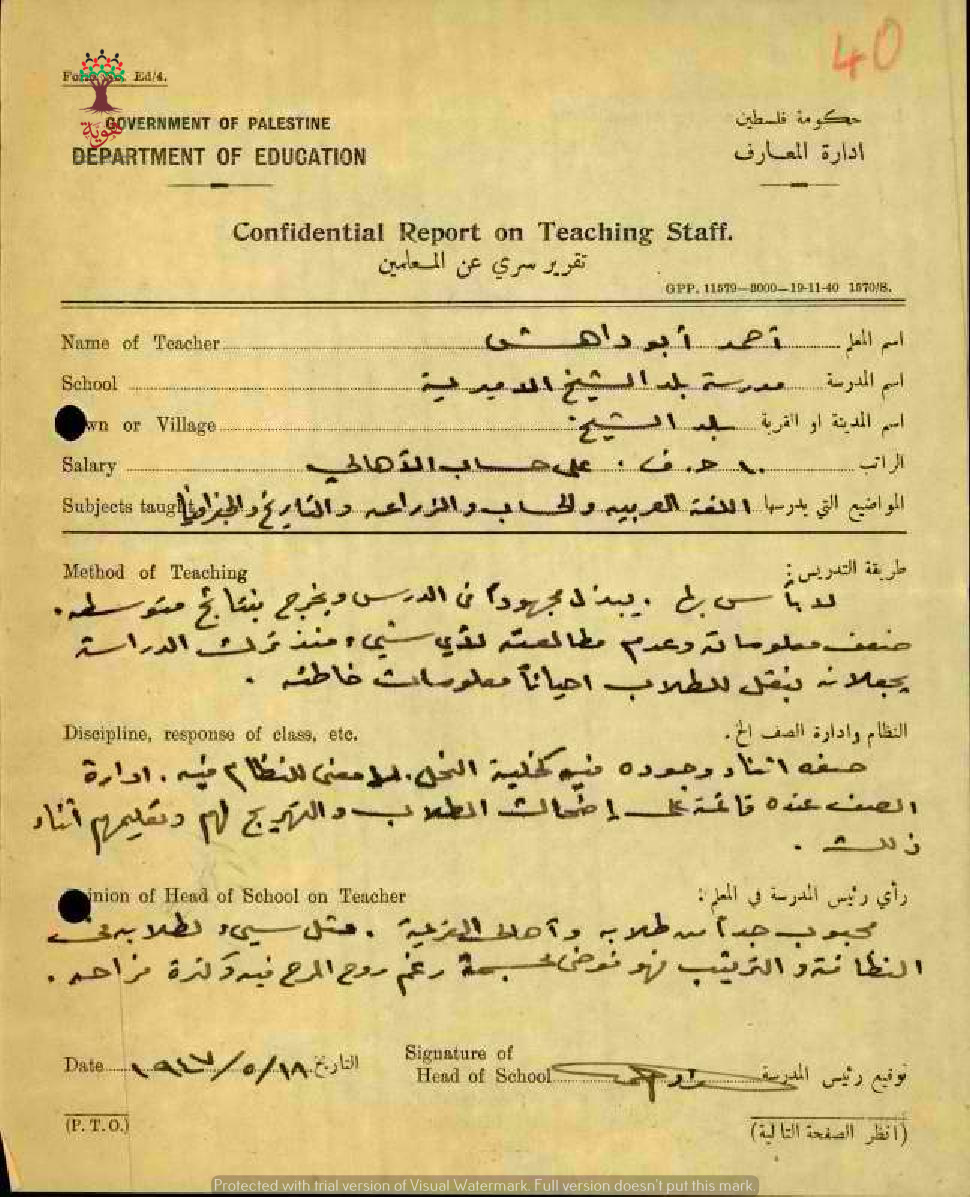 40
Ed/4.
هوية
GOVERNMENT OF PALESTINE
حكومة فلسطين
DEPARTMENT OF EDUCATION
ادارة المعارف
Confidential Report on Teaching Staff.
تقرير سري عن المعلمين
GPP. 11579—3000—19-11-40 1570/S.
Name of Teacher أحمد أبو داهش اسم المعلم
School مدرسة بلد الشيخ الاميرية اسم المدرسة
wn or Village بلد الشيخ اسم المدينة او القرية
Salary ١٠ ج. ف. على حساب الأهالي الراتب
Subjects taught اللغة العربيه والحساب والزراعه والتاريخ والجغرافيا المواضيع التي يدرسها
Method of Teaching طريقة التدريس:
لا بأس بها. يبذل مجهوداً في الدرس ويخرج بنتائج متوسطه.
ضعف معلوماته وعدم مطالعته لأي شيء منذ ترك الدراسة
يجعلانه ينقل للطلاب احياناً معلومات خاطئه.
Discipline, response of class, etc. النظام وادارة الصف الخ.
صفه اثناء وجوده فيه كخلية النحل. لا معنى للنظام فيه. ادارة
الصف عنده قائمة على إضحاك الطلاب والتهريج لهم وتعليمهم أثناء
ذلك.
inion of Head of School on Teacher رأي رئيس المدرسة في المعلم:
محبوب جداً من طلابه وأهالي القرية. مثل سيء لطلابه في
النظافة والترتيب فهو فوضى رغم روح المرح فيه وكثرة مزاحه.
Date ١٩٤٧/٥/١٨ التاريخ
Signature of
Head of School توقيع رئيس المدرسة
(P. T. O.) (انظر الصفحة التالية)
Protected with trial version of Visual Watermark. Full version doesn't put this mark.